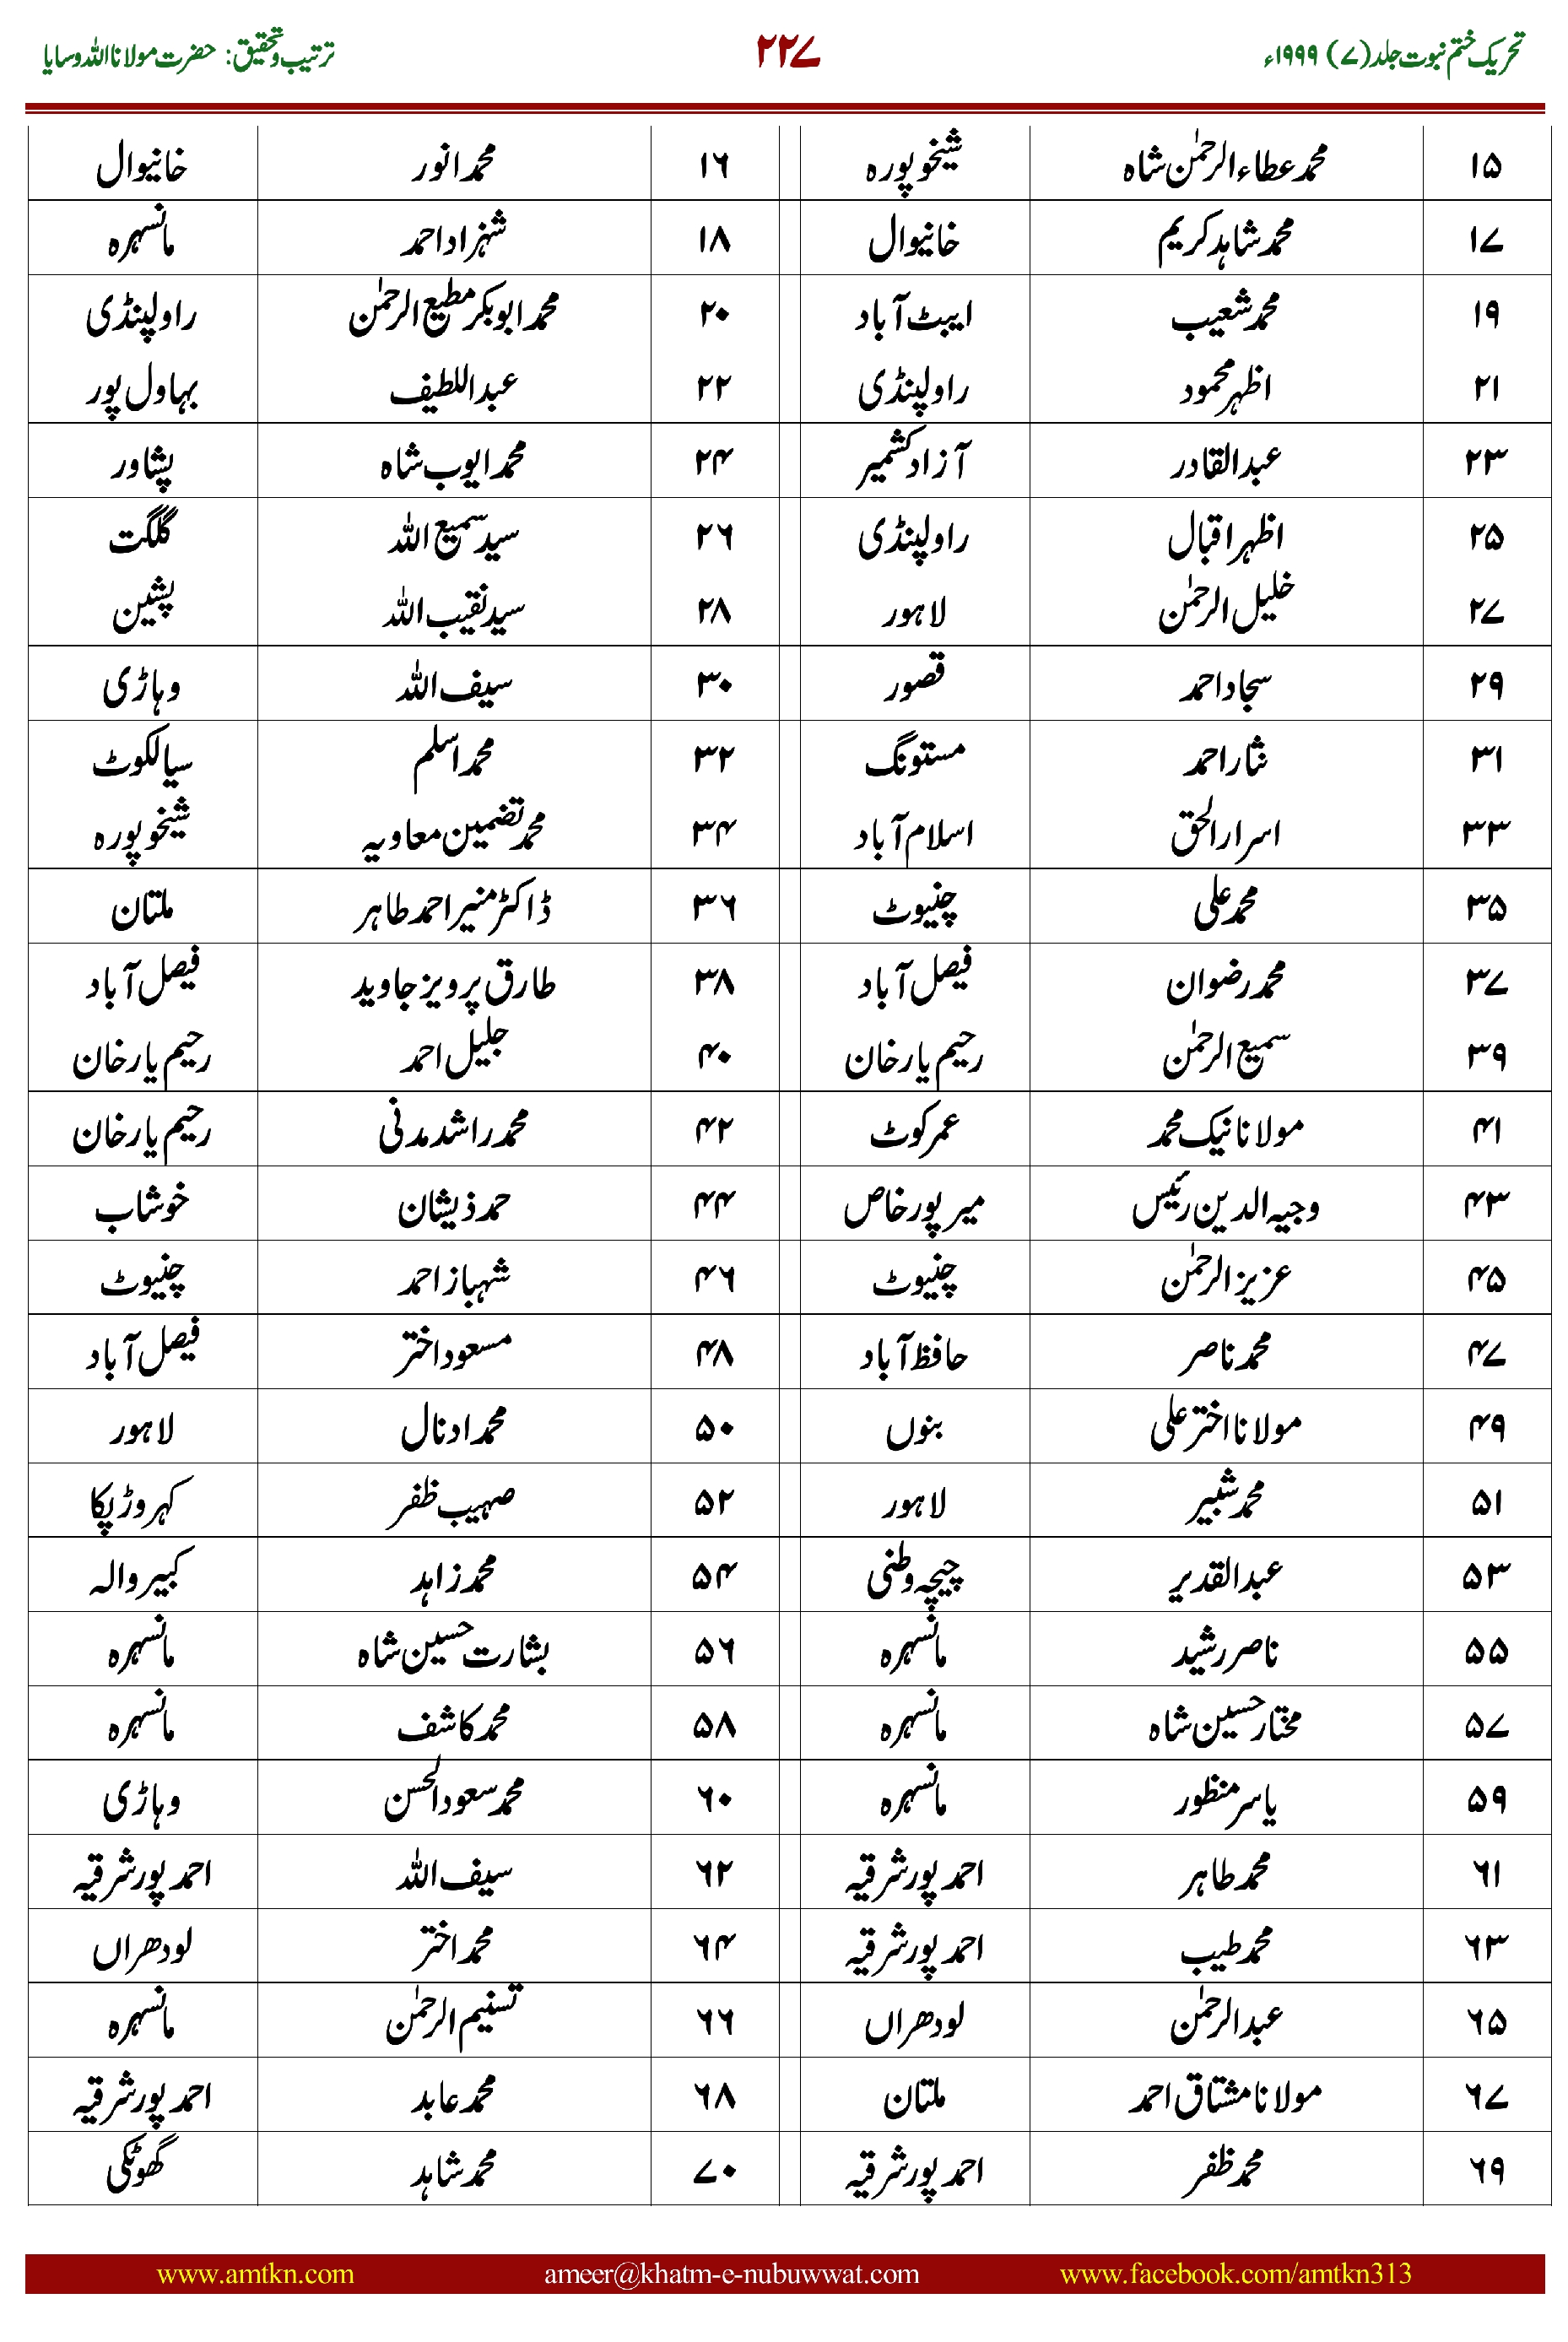 تحریک ختم نبوت جلد (۷) ۱۹۹۹ء ۲۲۷ ترتیب و تحقیق: حضرت مولانا اللہ وسایا
۱۵ محمد عطاء الرحمٰن شاہ شیخوپورہ ۱۶ محمد انور خانیوال
۱۷ محمد شاہد کریم خانیوال ۱۸ شہزاد احمد مانسہرہ
۱۹ محمد شعیب ایبٹ آباد ۲۰ محمد ابوبکر مطیع الرحمٰن راولپنڈی
۲۱ اظہر محمود راولپنڈی ۲۲ عبداللطیف بہاول پور
۲۳ عبدالقادر آزاد کشمیر ۲۴ محمد ایوب شاہ پشاور
۲۵ اظہر اقبال راولپنڈی ۲۶ سید سمیع اللہ گلگت
۲۷ خلیل الرحمٰن لاہور ۲۸ سید نقیب اللہ پشین
۲۹ سجاد احمد قصور ۳۰ سیف اللہ وہاڑی
۳۱ نثار احمد مستونگ ۳۲ محمد اسلم سیالکوٹ
۳۳ اسرار الحق اسلام آباد ۳۴ محمد تضمین معاویہ شیخوپورہ
۳۵ محمد علی چنیوٹ ۳۶ ڈاکٹر منیر احمد طاہر ملتان
۳۷ محمد رضوان فیصل آباد ۳۸ طارق پرویز جاوید فیصل آباد
۳۹ سمیع الرحمٰن رحیم یار خان ۴۰ جلیل احمد رحیم یار خان
۴۱ مولانا نیک محمد عمر کوٹ ۴۲ محمد راشد مدنی رحیم یار خان
۴۳ وجیہ الدین رئیس میر پور خاص ۴۴ حمد ذیشان خوشاب
۴۵ عزیز الرحمٰن چنیوٹ ۴۶ شہباز احمد چنیوٹ
۴۷ محمد ناصر حافظ آباد ۴۸ مسعود اختر فیصل آباد
۴۹ مولانا اختر علی بنوں ۵۰ محمد ادنال لاہور
۵۱ محمد شبیر لاہور ۵۲ صہیب ظفر کہروڑ پکا
۵۳ عبدالقدیر چیچہ وطنی ۵۴ محمد زاہد کبیر والہ
۵۵ ناصر رشید مانسہرہ ۵۶ بشارت حسین شاہ مانسہرہ
۵۷ مختار حسین شاہ مانسہرہ ۵۸ محمد کاشف مانسہرہ
۵۹ یاسر منظور مانسہرہ ۶۰ محمد سعود الحسن وہاڑی
۶۱ محمد طاہر احمد پور شرقیہ ۶۲ سیف اللہ احمد پور شرقیہ
۶۳ محمد طیب احمد پور شرقیہ ۶۴ محمد اختر لودھراں
۶۵ عبدالرحمٰن لودھراں ۶۶ تسنیم الرحمٰن مانسہرہ
۶۷ مولانا مشتاق احمد ملتان ۶۸ محمد عابد احمد پور شرقیہ
۶۹ محمد ظفر احمد پور شرقیہ ۷۰ محمد شاہد گھوٹکی
www.amtkn.com ameer@khatm-e-nubuwwat.com www.facebook.com/amtkn313